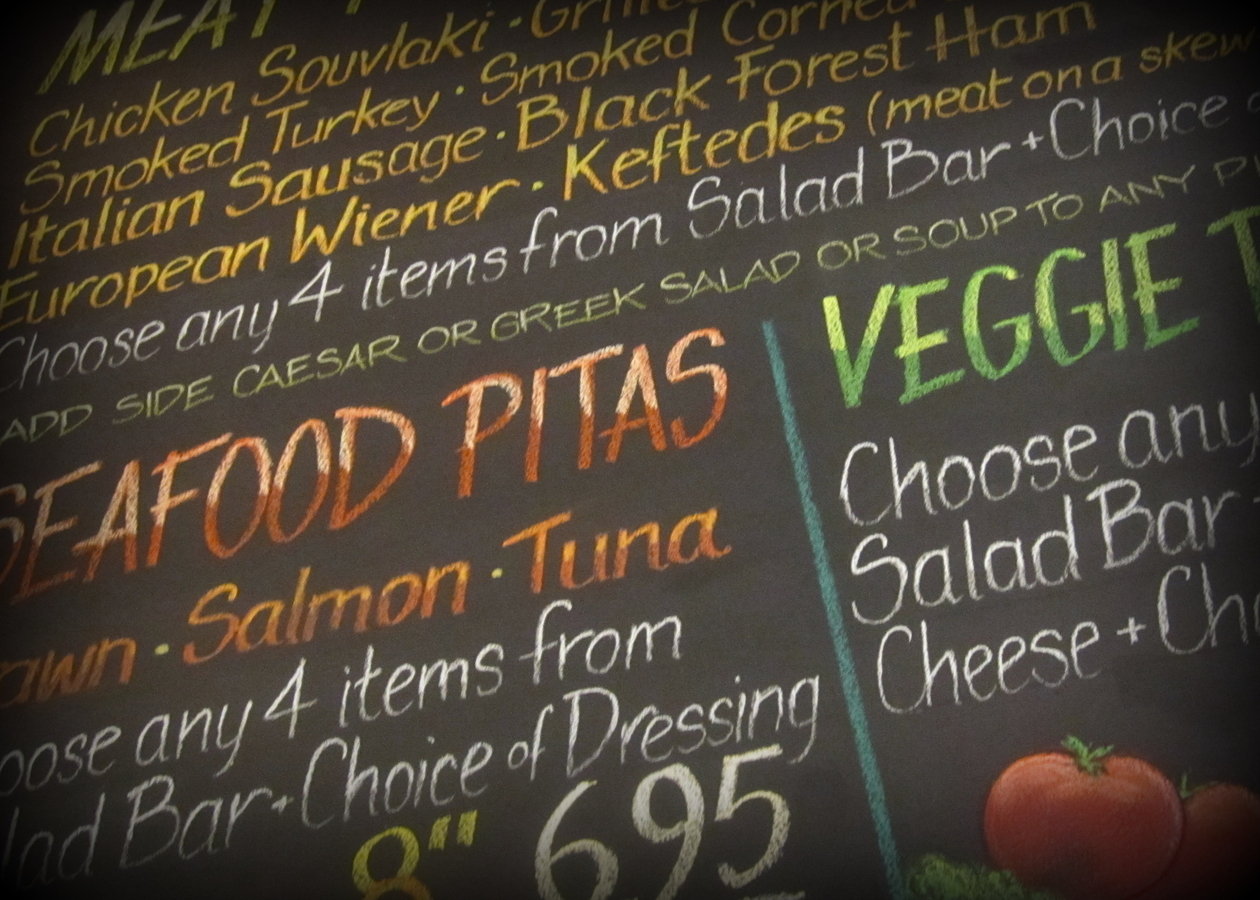 MEAT
Chicken Souvlaki · Grilled
Smoked Turkey · Smoked Corned
Italian Sausage · Black Forest Ham
European Wiener · Keftedes (meat on a skew
Choose any 4 items from Salad Bar + Choice
ADD SIDE CAESAR OR GREEK SALAD OR SOUP TO ANY P
SEAFOOD PITAS
awn · Salmon · Tuna
oose any 4 items from
lad Bar + Choice of Dressing
8" 695
VEGGIE T
Choose any
Salad Bar
Cheese + Ch